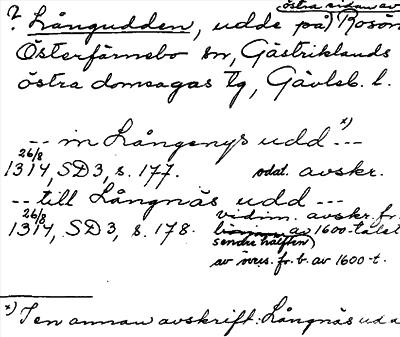 östra sidan av
? Långudden, udde på) Rosön
Österfärnebo sn, Gästriklands
östra domsagas tg, Gävleb. l.
-- in Långenys udd x) ---
26/8
1314, SD 3, s. 177. odat. avskr.
-- till Långnäs udd ---
26/8 vidim. avskr. fr.
1314, SD 3, s. 178. av 1600-talet
senare hälften
av övers. fr. b. av 1600-t.
x) I en annan avskrift: Långnäs udd